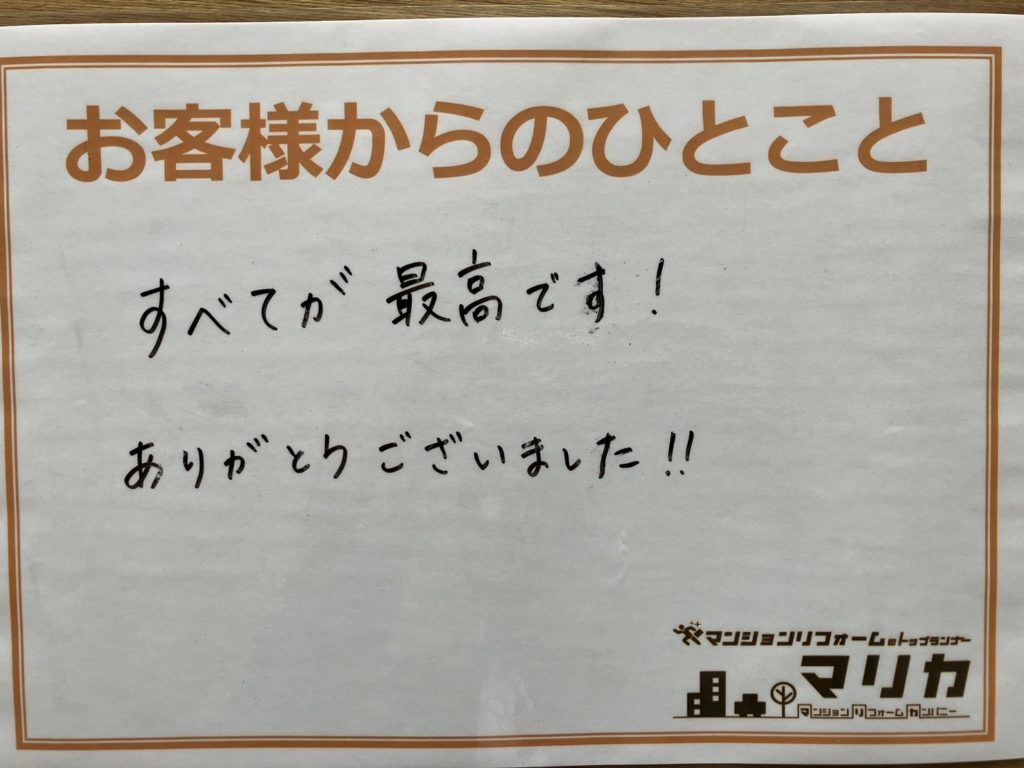 お客様からのひとこと
すべてが最高です！
ありがとうございました!!
マンションリフォームのトップランナー
マリカ
マンションリフォームカンパニー